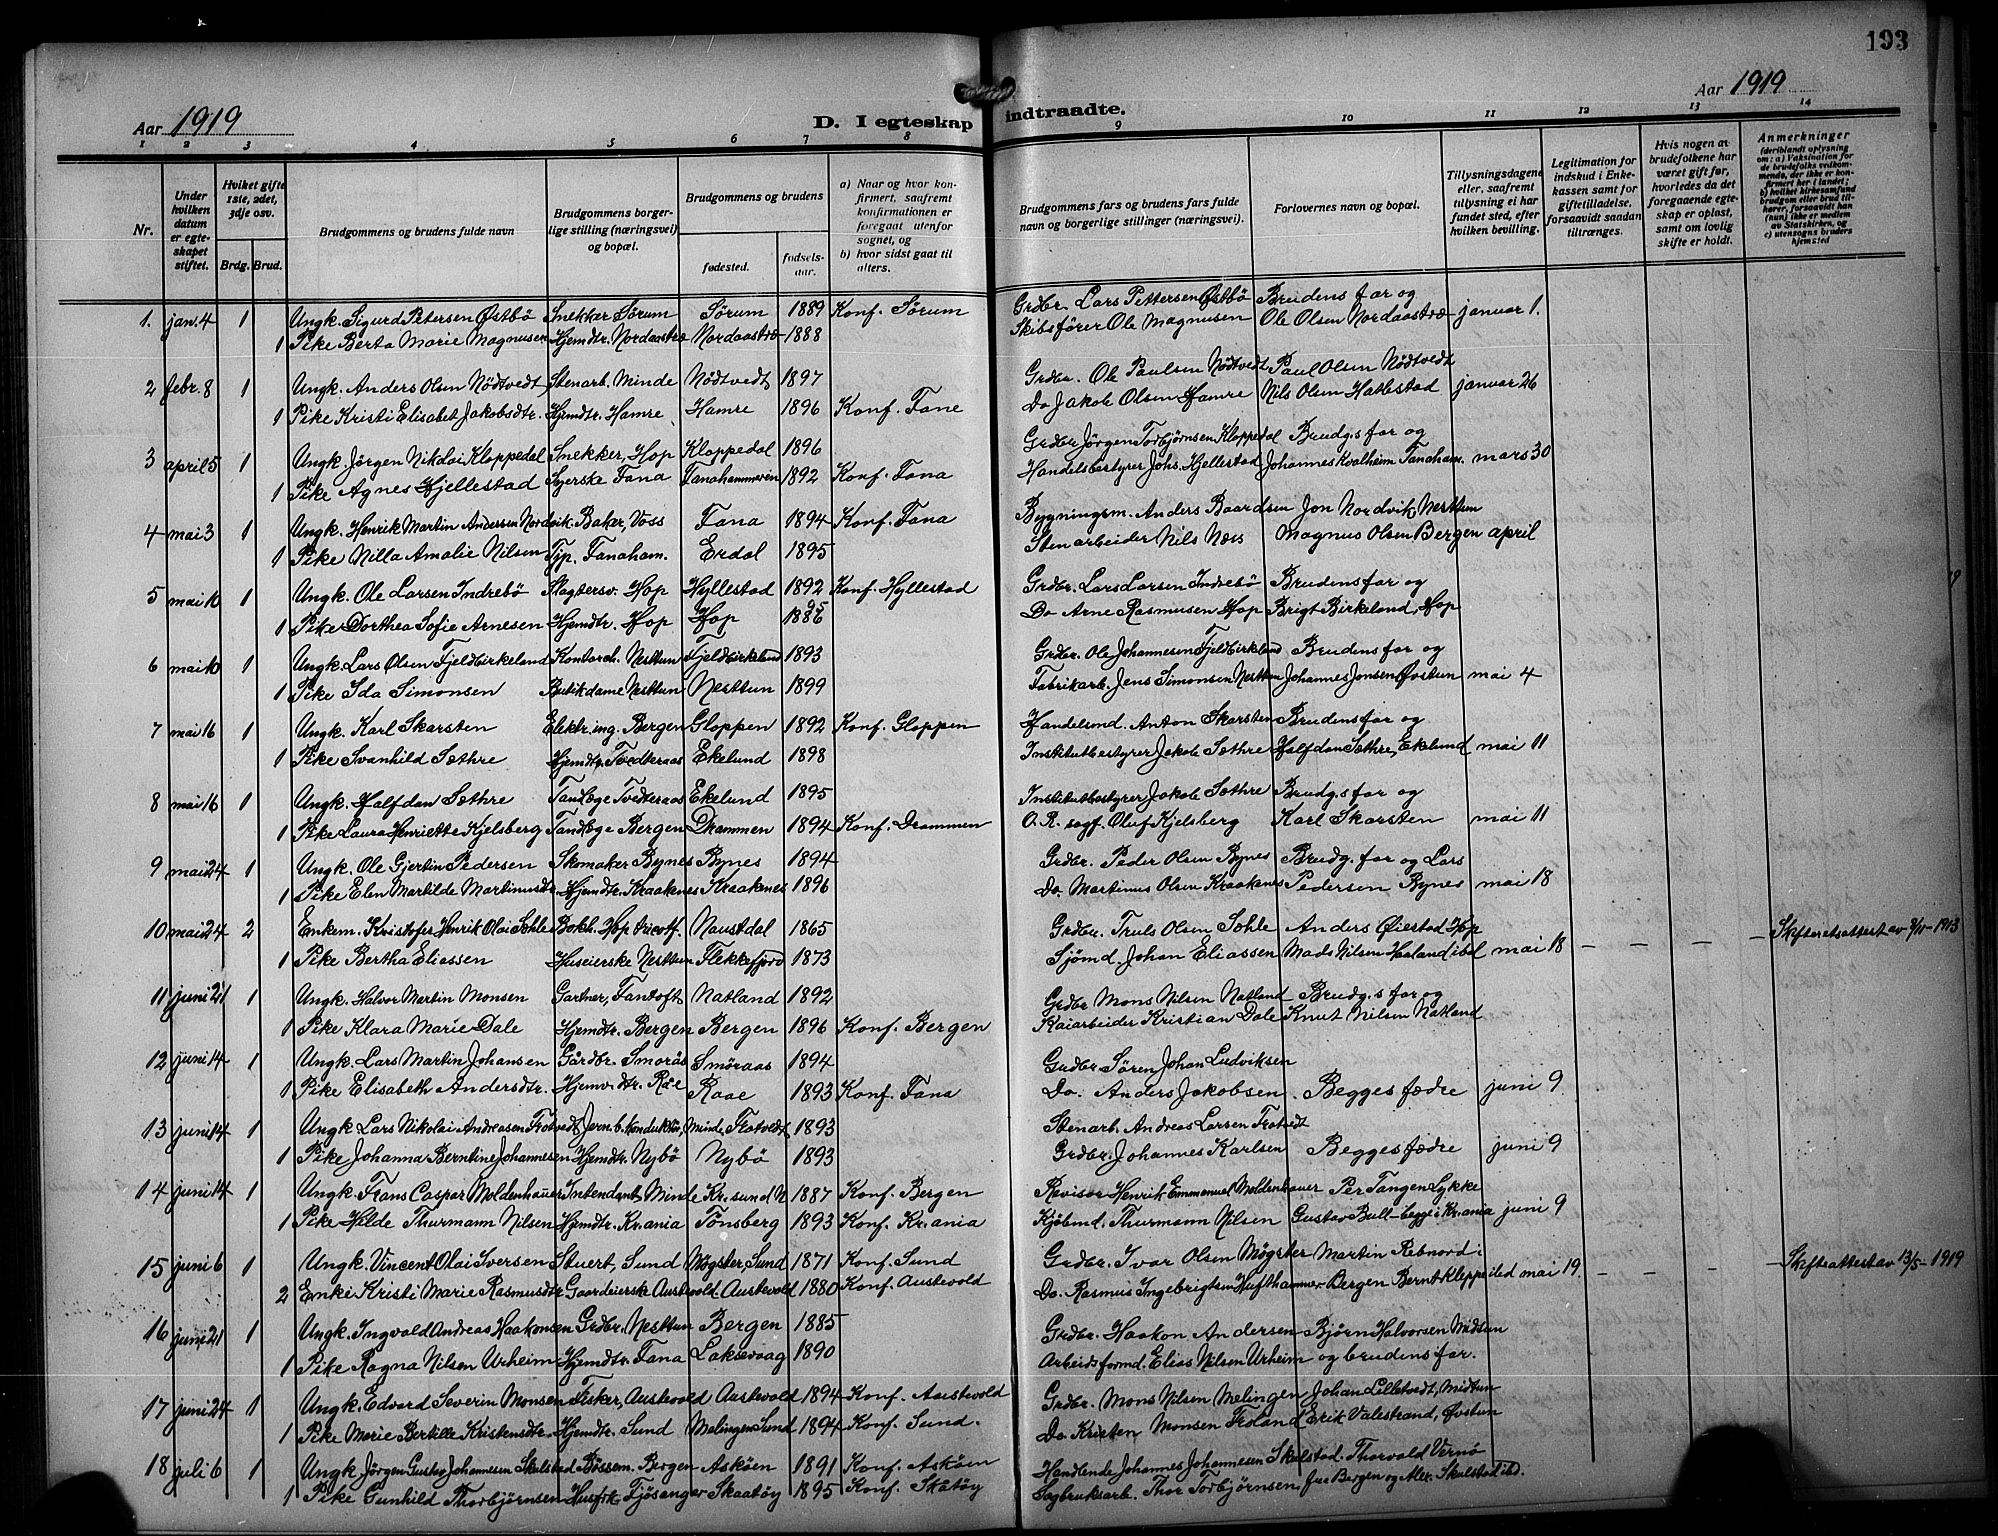 193
Aar 1919
D. I egteskap indtraadte.
Aar 1919
1 2 3 4 5 6 7 8 9 10 11 12 13 14
Nr.
Under hvilken datum er egteskapet stiftet.
Hviket gifte 1ste, 2det, 3dje osv.
Brdg. Brud.
Brudgommens og brudens fulde navn
Brudgommens borgerlige stilling (næringsvei) og bopæl.
Brudgommens og brudens
fødested.
fødselsaar.
a) Naar og hvor konfirmert, saafremt konfirmationen er foregaat utenfor sognet, og
b) hvor sidst gaat til alters.
Brudgommens fars og brudens fars fulde navn og borgerlige stillinger (næringsvei).
Forlovernes navn og bopæl.
Tillysningsdagene eller, saafremt tillysning ei har fundet sted, efter hvilken bevilling.
Legitimation for indskud i Enkekassen samt for giftetilladelse, forsaavidt saadan tiltrænges.
Hvis nogen av brudefolkene har været gift før, hvorledes da det foregaaende egteskap er opløst, samt om lovlig skifte er holdt.
Anmerkninger (deriblandt oplysning om: a) Vaksination for de brudefolks vedkommende, der ikke er konfirmert her i landet; b) hvilket kirkesamfund brudgom eller brud tilhører, forsaavidt han (hun) ikke er medlem av Statskirken, og c) utensogns bruders hjemsted
1. jan. 4 1 Ungk. Sigurd Petersen Østbö Snekker Sörum Sörum 1889 Konf. Sörum Grdbr. Lars Pettersen Østbö Brudens far og januar 1.
1 Pike Berta Marie Magnusen Hjemdtr. Nordaastræ Nordaastræ 1888 Skibsförer Ole Magnusen Ole Olsen Nordaastræ
2 febr. 8 1 Ungk. Anders Olsen Nödtvedt Stenarb. Minde Nödtvedt 1897 Grdbr. Ole Paulsen Nödtvedt Paul Olsen Nödtvedt
1 Pike Kristi Elisabet Jakobsdtr. Hjemdtr. Hamre Hamre 1896 Konf. Fane Do Jakob Olsen Hamre Nils Olsen Hatlestad januar 26
3 april 5 1 Ungk. Jörgen Nikolai Kloppedal Snekker, Hop Kloppedal 1896 Grdbr Jörgen Torbjörnsen Kloppedal Brudg.s far og
1 Pike Agnes Hjellestad Syerske Fana Fanahammeren 1892 Konf. Fana Handelsbestyrer Johs. Hjellestad Johannes Kvalheim Fanaham. mars 30
4 mai 3 1 Ungk. Henrik Martin Andersen Nordvik Baker, Voss Fana 1894 Konf. Fana Bygningsm. Anders Baardsen Jon Nordvik, Nesttun
1 Pike Nilla Amalie Nilsen Tjp. Fanaham. Erdal 1895 Stenarbeider Nils Næs Magnus Olsen Bergen april
5 mai 10 1 Ungk. Ole Larsen Indrebö Slagtersv. Hop Hyllestad 1892 Konf. Hyllestad Grdbr. Lars Larsen Indrebö Brudens far og
1 Pike Dorthea Sofie Arnesen Hjemdtr. Hop Hop 1886 95 Do Arne Rasmusen Hop Brigt Birkeland, Hop
6 mai 10 1 Ungk. Lars Olsen Fjeldbirkeland Kontorch. Nesttun Fjeldbirkeland 1893 Grdbr. Ole Johannesen Fjeldbirkland Brudens far og
1 Pike Ida Simonsen Butikdame Nesttun Nesttun 1899 Fabrikarb. Jens Simonsen Nesttun Johannes Jonsen Øvstun mai 4
7 mai 16 1 Ungk. Karl Skarsten Elektr. ing. Bergen Gloppen 1892 Konf. Gloppen Handelsmd. Anton Skarsten Brudens far og
1 Pike Svanhild Sæthre Hjemdtr. Tvedteraas Ekelund 1898 Institutbestyrer Jakob Sæthre Halfdan Sæthre, Ekelund mai 11
8 mai 16 1 Ungk. Halfdan Sæthre Tandlæge Tvedteraas Ekelund 1895 Institutbestyrer Jakob Sæthre Brudg.s far og
1 Pike Laura Henriette Kjelsberg Tandlæge Bergen Drammen 1894 Konf. Drammen O. R. sagf. Oluf Kjelsberg Karl Skarsten mai 11
9 mai 24 1 Ungk. Ole Gjertin Pedersen Skomaker Bynes Bynes 1894 Grdbr. Peder Olsen Bynes Brudg. far og Lars
1 Pike Elen Martilde Martinusdtr. Hjemdtr. Kraakenes Kraakenes 1896 Do. Martinus Olsen Kraakenes Pedersen Bynes mai 18
10 mai 24 2 Enkem. Kristofer Henrik Olai Sohle Bokh. Hop tricotf. Naustdal 1865 Grdbr. Truls Olsen Sohle Anders Øiestad Hop Skifteretsattest av 9/11-1913
1 Pike Bertha Eliassen Huseierske Nesttun Flekkefjord 1873 Sjömd. Johan Eliassen Mads Nilsen Haaland ibd mai 18 - - - -
11 juni 21 1 Ungk. Halvor Martin Monsen Gartner, Fantoft Natland 1892 Grdbr Mons Nilsen Natland Brudg.s far og
1 Pike Klara Marie Dale Hjemdtr. Bergen Bergen 1896 Konf. Bergen Kaiarbeider Kristian Dale Knut Nilsen Natland
12 juni 14 1 Ungk. Lars Martin Johansen Gårdbr. Smorås Smöraas 1894 Grdbr Sören Johan Ludviksen
1 Pike Elisabeth Andersdtr. Hjemv. dtr. Råe Raae 1893 Konf. Fana Do. Anders Jakobsen Begges fædre juni 9
13 juni 14 1 Ungk. Lars Nikolai Andreasen Trotvedt Jernb. konduktör, Minde Trotvedt 1893 Stenarb. Andreas Larsen Trotvedt
1 Pike Johanna Berntine Johannesen Hjemdtr. Nybö Nybö 1893 Grdbr. Johannes Karlsen Begges fædre juni 9
14 juni 14 1 Ungk. Frans Caspar Moldenhauer Intendant Minde Kr.sund N 1887 Konf. Bergen Revisor Henrik Emmanuel Moldenhauer Per Tangen Lykke
1 Pike Hilde Thurmann Nilsen Hjemdtr. Kr.ania Tönsberg 1893 Konf. Kr.ania Kjöbmd. Thurmann Nilsen Gustav Bull-begge i Kr.ania juni 9
15 juni 6 1 Ungk. Vincent Olai Iversen Stuert, Sund Møgster, Sund 1871 Konf. Sund Grdbr. Ivar Olsen Møgster Martin Rebnord i Skifteattest av 13/5-1919
2 Enke Kristi Marie Rasmusdtr Gaardeierske Austevold Austevold 1880 Konf. Austevold Do. Rasmus Ingebrigtsen Hufthammer Bergen Bernt Kleppe ibd mai 19. - - - -
16 juni 21 1 Ungk. Ingvald Andreas Haakonsen Grdbr. Nesttun Bergen 1885 Grdbr. Haakon Andersen Bjørn Halvorsen Midtun
1 Pike Ragna Nilsen Urheim Hjemdtr. Fana Laksevaag 1890 Arbeidsformd. Elias Nilsen Urheim og brudens far.
17 juni 24 1 Ungk. Edvard Severin Monsen Fisker, Austevold Austevold 1894 Konf. Austevold Grdbr. Mons Nilsen Melingen Johan Lilletvedt, Midtun
1 Pike Marie Bertille Kristensdtr. Hjemdtr. Sund Melingen Sund 1894 Konf. Sund. Do. Kristen Monsen Troland Erik Valestrand, Øvstun
18 juli 6 1 Ungk. Jörgen Gustav Johannesen Skulstad Bössem. Bergen Asköen 1891 Konf. Asköen Handlende Johannes Johannesen Skulstad Thorvald Vernö
1 Pike Gunhild Thorbjörnsen Husfrk. Fjösanger Skaatöy 1895 Konf. Skåtöy Sagbruksarb. Thor Torbjörnsen fra Bergen og Aler. Skulstad ibd.